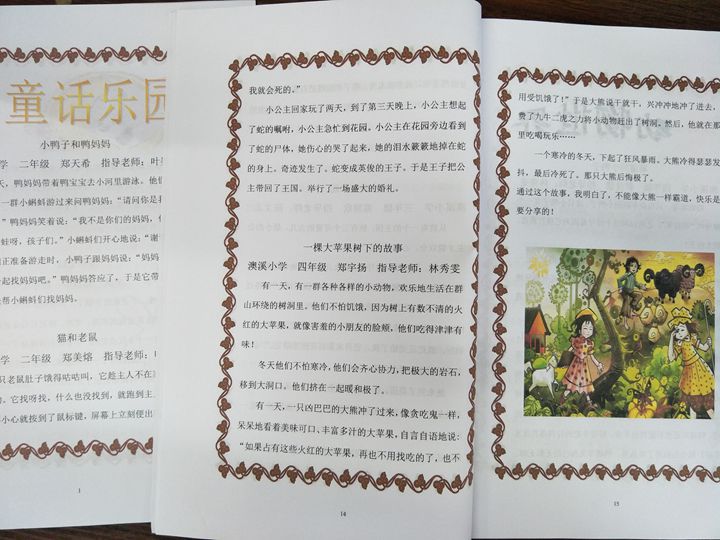 童话乐园
小鸭子和鸭妈妈
学 二年级 郑天希 指导老师：叶
天，鸭妈妈带着鸭宝宝去小河里游泳。他们
一群小蝌蚪游过来问鸭妈妈：“请问你是我
鸭妈妈笑着说：“我不是你们的妈妈，你
蛙呀，孩子们。”小蝌蚪们开心地说：“谢
正准备游走时，小鸭子跟妈妈说：“妈妈
起找妈妈吧。”鸭妈妈答应了，于是它带
帮小蝌蚪们找妈妈。
猫和老鼠
学 二年级 郑美熔 指导老师：
只老鼠肚子饿得咕咕叫，它趁主人不在
物。它找呀找，什么也没找到，就跑到主
小心就按到了鼠标键，屏幕上立刻便出
1
我就会死的。”
小公主回家玩了两天，到了第三天晚上，小公主想起
了蛇的嘱咐，小公主急忙到花园。小公主在花园旁边看到
了蛇的尸体，她伤心的哭了起来，她的泪水簌簌地掉在蛇
的身上。奇迹发生了。蛇变成英俊的王子。于是王子把公
主带回了王国。举行了一场盛大的婚礼。
一棵大苹果树下的故事
澳溪小学 四年级 郑宇扬 指导老师：林秀雯
有一天，有一群各种各样的小动物，欢乐地生活在群
山环绕的树洞里。他们不怕饥饿，因为树上有数不清的火
红的大苹果，就像害羞的小朋友的脸颊。他们吃得津津有
味！
冬天他们不怕寒冷，他们会齐心协力，把极大的岩石，
移到大洞口。他们挤在一起暖和极了。
有一天，一只凶巴巴的大熊冲了过来，像贪吃鬼一样，
呆呆地看着美味可口、丰富多汁的大苹果，自言自语地说：
“如果占有这些火红的大苹果，再也不用找吃的了，也不
14
用受饥饿了！”于是大熊说干就干，兴冲冲地冲了进去，
费了九牛二虎之力将小动物赶出了树洞。然后，他就在那
里吃喝玩乐……
一个寒冷的冬天，下起了狂风暴雨。大熊冷得瑟瑟发
抖，最后冷死了。那只大熊后悔极了。
通过这个故事，我明白了，不能像大熊一样霸道，快乐是
要分享的！
15